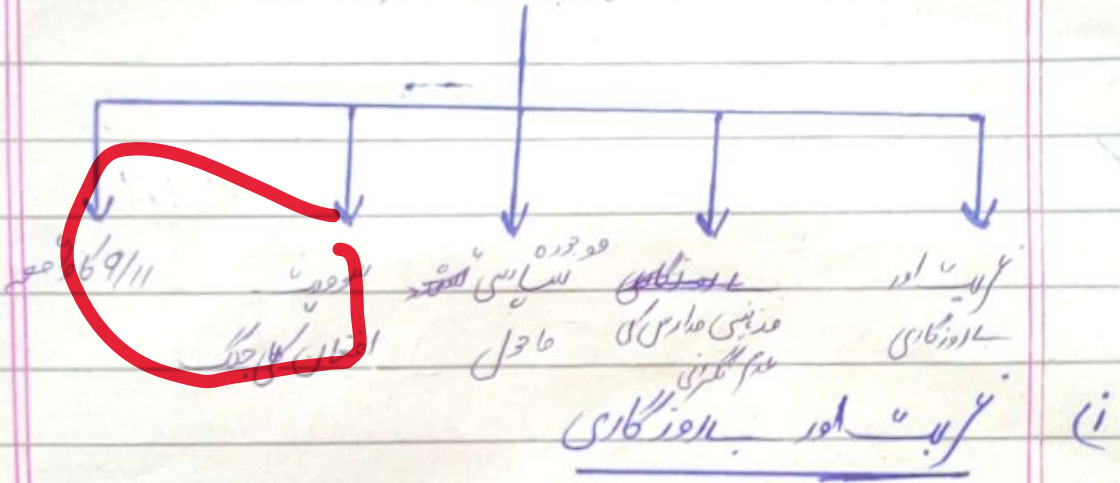 غربت اور
بےروزگاری
مذہبی مدارس کی
عدم نگرانی
موجودہ
سیاسی
ماحول
سوویت
افغان کی جنگ
9/11 کا واقعہ
(i غربت اور بےروزگاری